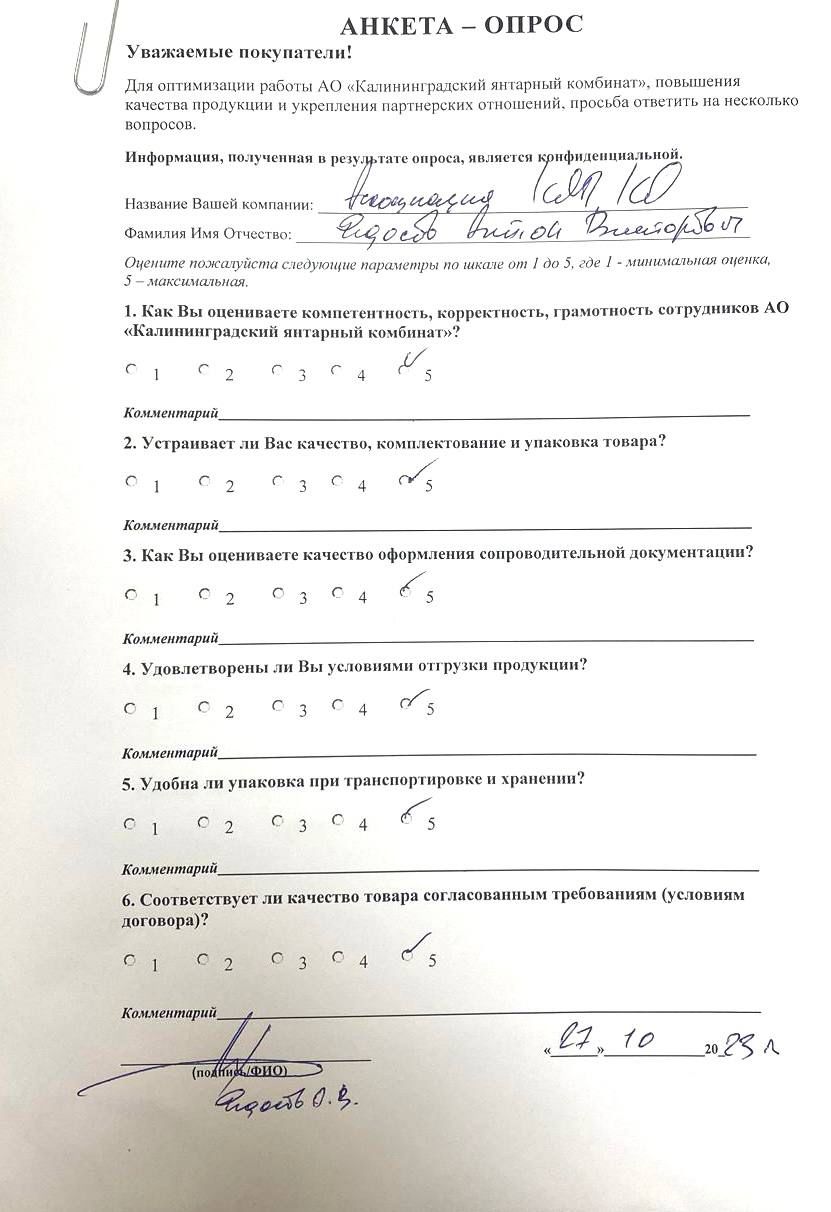 АНКЕТА – ОПРОС
Уважаемые покупатели!
Для оптимизации работы АО «Калининградский янтарный комбинат», повышения
качества продукции и укрепления партнерских отношений, просьба ответить на несколько
вопросов.
Информация, полученная в результате опроса, является конфиденциальной.
Название Вашей компании: Ассоциация
Фамилия Имя Отчество: Антон Викторович
Оцените пожалуйста следующие параметры по шкале от 1 до 5, где 1 - минимальная оценка,
5 – максимальная.
1. Как Вы оцениваете компетентность, корректность, грамотность сотрудников АО
«Калининградский янтарный комбинат»?
1 2 3 4 5
Комментарий
2. Устраивает ли Вас качество, комплектование и упаковка товара?
1 2 3 4 5
Комментарий
3. Как Вы оцениваете качество оформления сопроводительной документации?
1 2 3 4 5
Комментарий
4. Удовлетворены ли Вы условиями отгрузки продукции?
1 2 3 4 5
Комментарий
5. Удобна ли упаковка при транспортировке и хранении?
1 2 3 4 5
Комментарий
6. Соответствует ли качество товара согласованным требованиям (условиям
договора)?
1 2 3 4 5
Комментарий
«27» 10 2023 г
(подпись/ФИО)